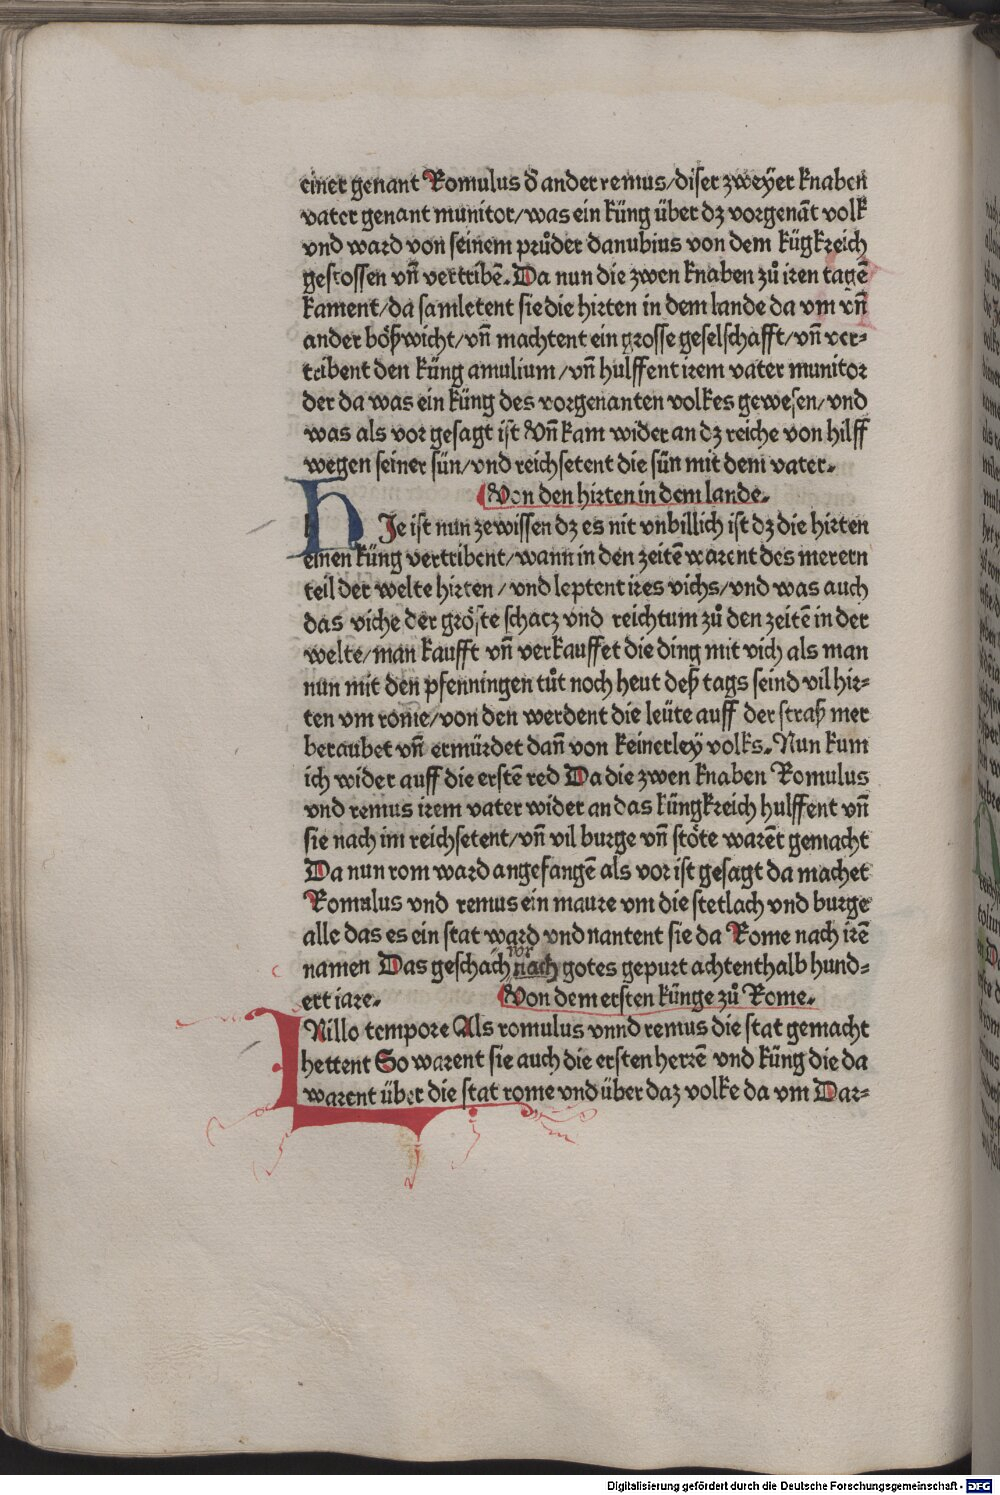 einer genant Romulus d̄ ander remus/diser zweÿer knaben
vater genant munitor/was ein küng über dz vorgenāt volk
vnd ward von seinem průder danubius von dem kügkreich
gestossen vn̄ vertribē. Da nun die zwen knaben zů iren tagē
kament/da samletent sie die hirten in dem lande da vm vn̄
ander bößwicht/vn̄ machtent ein grosse geselschafft/vn̄ ver-
tribent den küng amulium/vn̄ hulffent irem vater munitor
der da was ein küng des vorgenanten volkes gewesen/vnd
was als vor gesagt ist Vn̄ kam wider an dz reiche von hilff
wegen seiner sün/vnd reichsetent die sün mit dem vater.
Von den hirten in dem lande.
HJe ist nun zewissen dz es nit vnbillich ist dz die hirten
einen küng vertribent/wann in den zeitē warent des merern
teil der welte hirten/vnd leptent ires vichs/vnd was auch
das viche der gröste schacz vnd reichtum zů den zeitē in der
welte/man kaufft vn̄ verkauffet die ding mit vich als man
nun mit den pfenningen tůt noch heut deß tags seind vil hir-
ten vm rome/von den werdent die leüte auff der straß mer
beraubet vn̄ ermürdet dan̄ von keinerley volks. Nun kum
ich wider auff die erstē red Da die zwen knaben Romulus
vnd remus irem vater wider an das küngkreich hulffent vn̄
sie nach im reichsetent/vn̄ vil burge vn̄ stöte warēt gemacht
Da nun rom ward angefangē als vor ist gesagt da machet
Romulus vnd remus ein maure vm die stetlach vnd burge
alle das es ein stat ward vnd nantent sie da Rome nach irē
vor
namen Das geschach nach gotes gepurt achtenthalb hund-
ert iare.
Von dem ersten künge zů Rome.
INillo tempore Als romulus vnnd remus die stat gemacht
hettent So warent sie auch die ersten herrē vnd küng die da
warent über die stat rome vnd über daz volke da vm Dar-
Digitalisierung gefördert durch die Deutsche Forschungsgemeinschaft - DFG